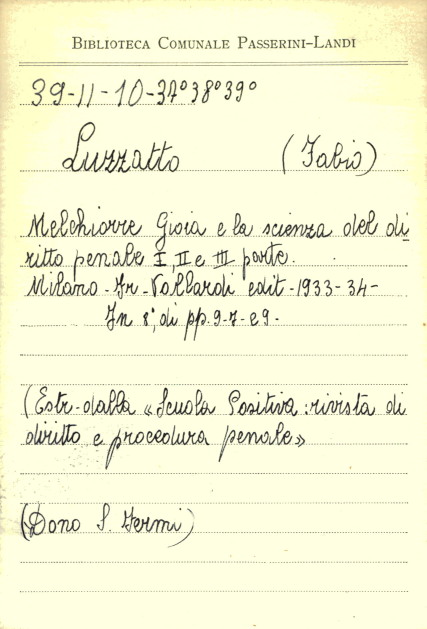 BIBLIOTECA COMUNALE PASSERINI-LANDI
39-11-10-37°38°39°
Luzzatto (Fabio)
Melchiorre Gioia e la scienza del di
ritto penale I, II e III parte.
Milano - Fr. Vallardi edit - 1933-34-
In 8°, di pp. 9-7- e 9.
(Estr. dalla «Scuola Positiva: rivista di
diritto e procedura penale»
(Dono S. Fermi)